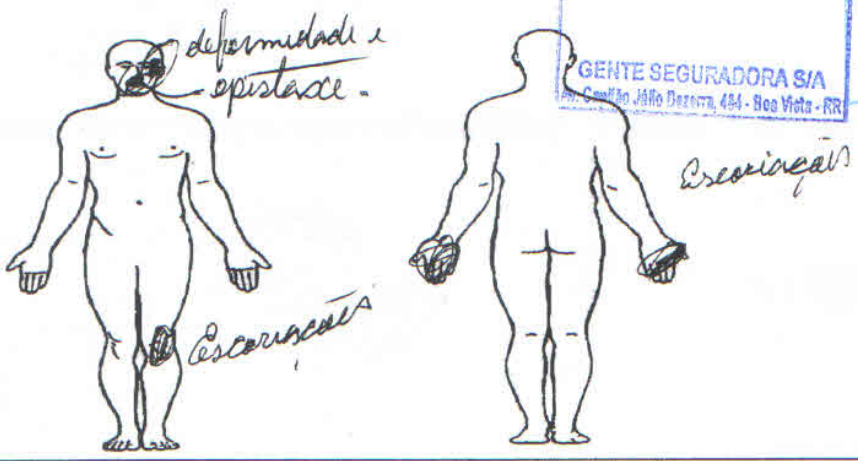 deformidade e
epistaxe.
GENTE SEGURADORA S/A
Av. Capitão Júlio Bezerra, 484 - Boa Vista - RR
Escoriações
Escoriações